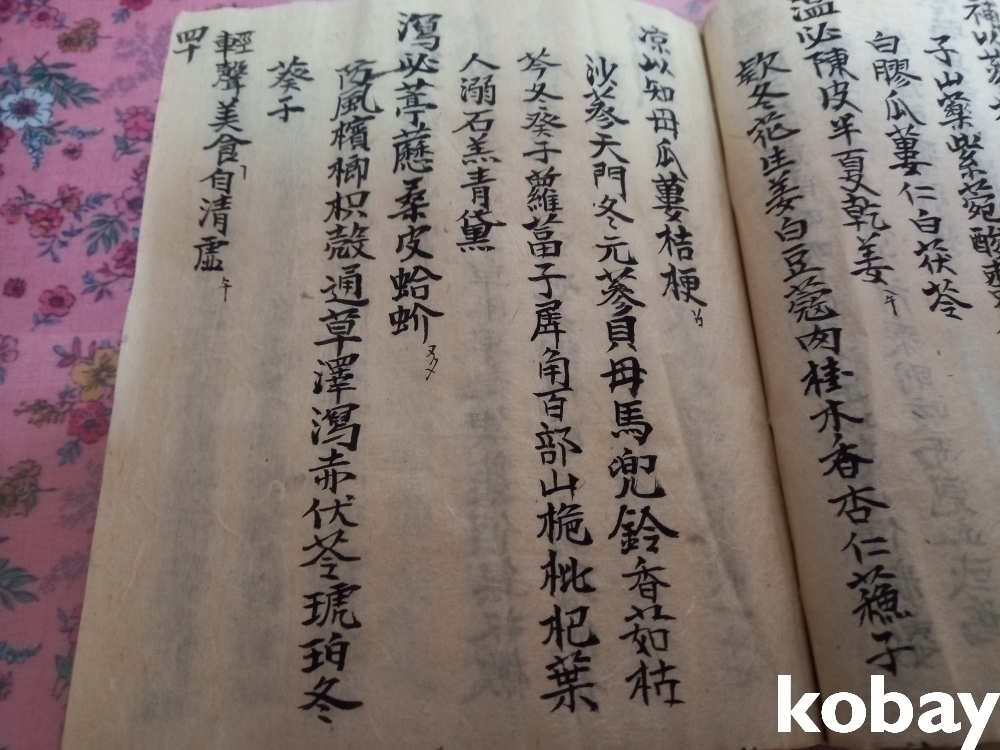 補以
子山藥紫菀酸棗
白膠瓜蔞仁白茯苓
溫必陳皮半夏乾姜
欵冬花生姜白豆蔻肉桂木香杏仁蘓子
凉以知母瓜蔞桔梗
沙蔘天門冬元蔘貝母馬兜鈴香茹枯
芩冬癸子蘿葍子犀角百部山梔枇杷葉
人溺石羔青黛
瀉必葶藶桑皮蛤蚧
防風檳榔枳殼通草澤瀉赤伏苓琥珀冬
葵子
輕聲美食自清虛
四十
kobay